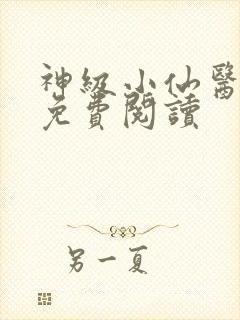 神級小仙醫
免費閱讀
另一夏